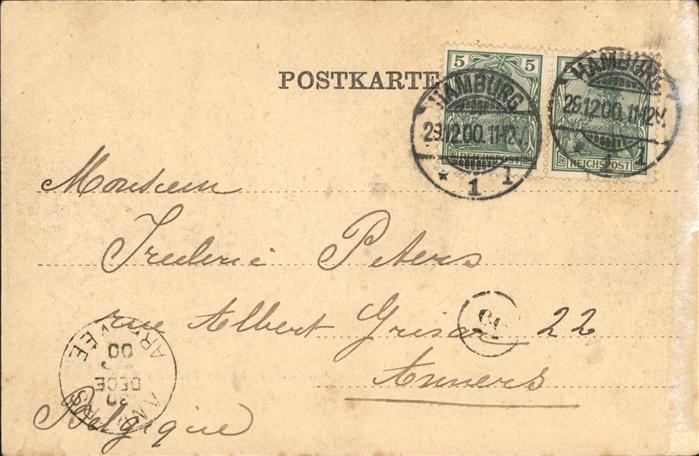 POSTKARTE
5 5
HAMBURG HAMBURG
29.12.00.11-12V. 29.12.00.11-12V.
REICHSPOST REICHSPOST
* 1 1 1 1
Monsieur
Frederic Peters
rue Albert Grisar 22
Anvers
Belgique
ARRIVÉE
00
DECE
30
ANVERS